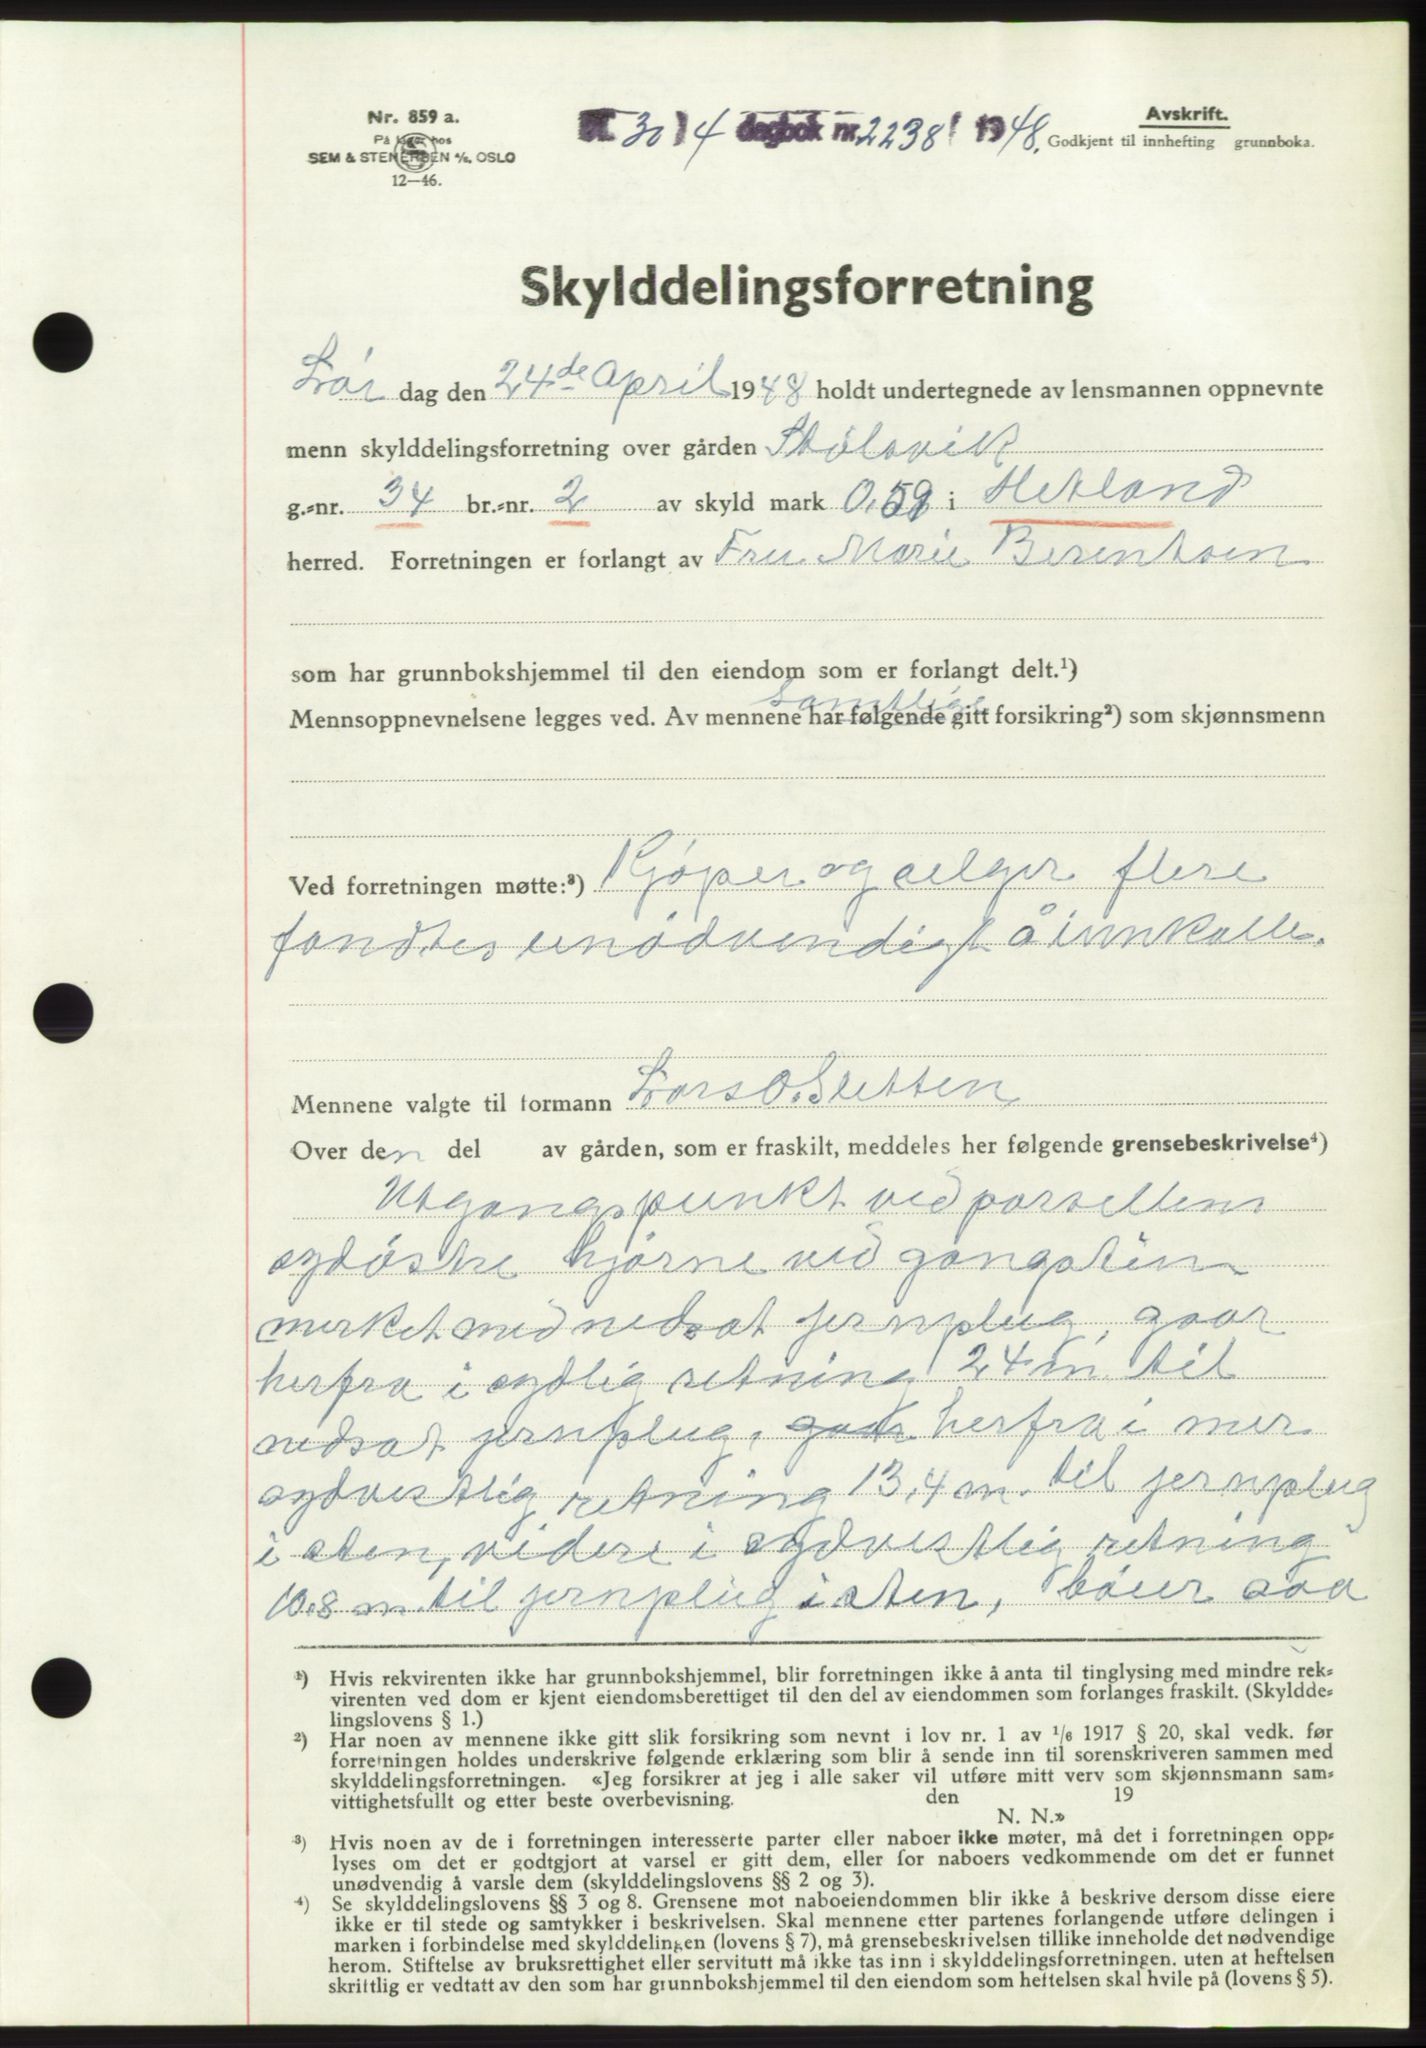 Nr. 859 a.
På lager hos
SEM & STENERSEN A/S, OSLO
12—46.
30/4 dagbok nr. 2238 1948,
Avskrift.
Godkjent til innhefting grunnboka.
Skylddelingsforretning
Lør dag den 24de April 1948 holdt undertegnede av lensmannen oppnevnte
menn skylddelingsforretning over gården Stølsvik
g.=nr. 34 br.=nr. 2 av skyld mark 0,59 i Hetland
herred. Forretningen er forlangt av Fru Marie Berentsen
som har grunnbokshjemmel til den eiendom som er forlangt delt.¹)
samtlige
Mennsoppnevnelsene legges ved. Av mennene har følgende gitt forsikring²) som skjønnsmenn
Ved forretningen møtte:³) Kjøper og selger flere
fandtes unødvendigt å innkalle.
Mennene valgte til formann Lars O. Sletten
Over den del av gården, som er fraskilt, meddeles her følgende grensebeskrivelse⁴)
Utgangspunkt ved parsellens
sydöstre hjørne ved gangstien
merket med nedsat jernplug, gaar
herfra i sydlig retning 24 m. til
nedsat jernplug, gaar herfra i mer
sydvestlig retning 13,4 m. til jernplug
i sten, videre i sydvestlig retning
10.8 m. til jernplug i sten, böier saa
¹) Hvis rekvirenten ikke har grunnbokshjemmel, blir forretningen ikke å anta til tinglysing med mindre rek=
virenten ved dom er kjent eiendomsberettiget til den del av eiendommen som forlanges fraskilt. (Skyldde=
lingslovens § 1.)
²) Har noen av mennene ikke gitt slik forsikring som nevnt i lov nr. 1 av ¹/₆ 1917 § 20, skal vedk. før
forretningen holdes underskrive følgende erklæring som blir å sende inn til sorenskriveren sammen med
skylddelingsforretningen. «Jeg forsikrer at jeg i alle saker vil utføre mitt verv som skjønnsmann sam=
vittighetsfullt og etter beste overbevisning. den 19
N. N.»
³) Hvis noen av de i forretningen interesserte parter eller naboer ikke møter, må det i forretningen opp=
lyses om det er godtgjort at varsel er gitt dem, eller for naboers vedkommende om det er funnet
unødvendig å varsle dem (skylddelingslovens §§ 2 og 3).
⁴) Se skylddelingslovens §§ 3 og 8. Grensene mot naboeiendommen blir ikke å beskrive dersom disse eiere
ikke er til stede og samtykker i beskrivelsen. Skal mennene etter partenes forlangende utføre delingen i
marken i forbindelse med skylddelingen (lovens § 7), må grensebeskrivelsen tillike inneholde det nødvendige
herom. Stiftelse av bruksrettighet eller servitutt må ikke tas inn i skylddelingsforretningen. uten at heftelsen
skriftlig er vedtatt av den som har grunnbokshjemmel til den eiendom som heftelsen skal hvile på (lovens § 5).